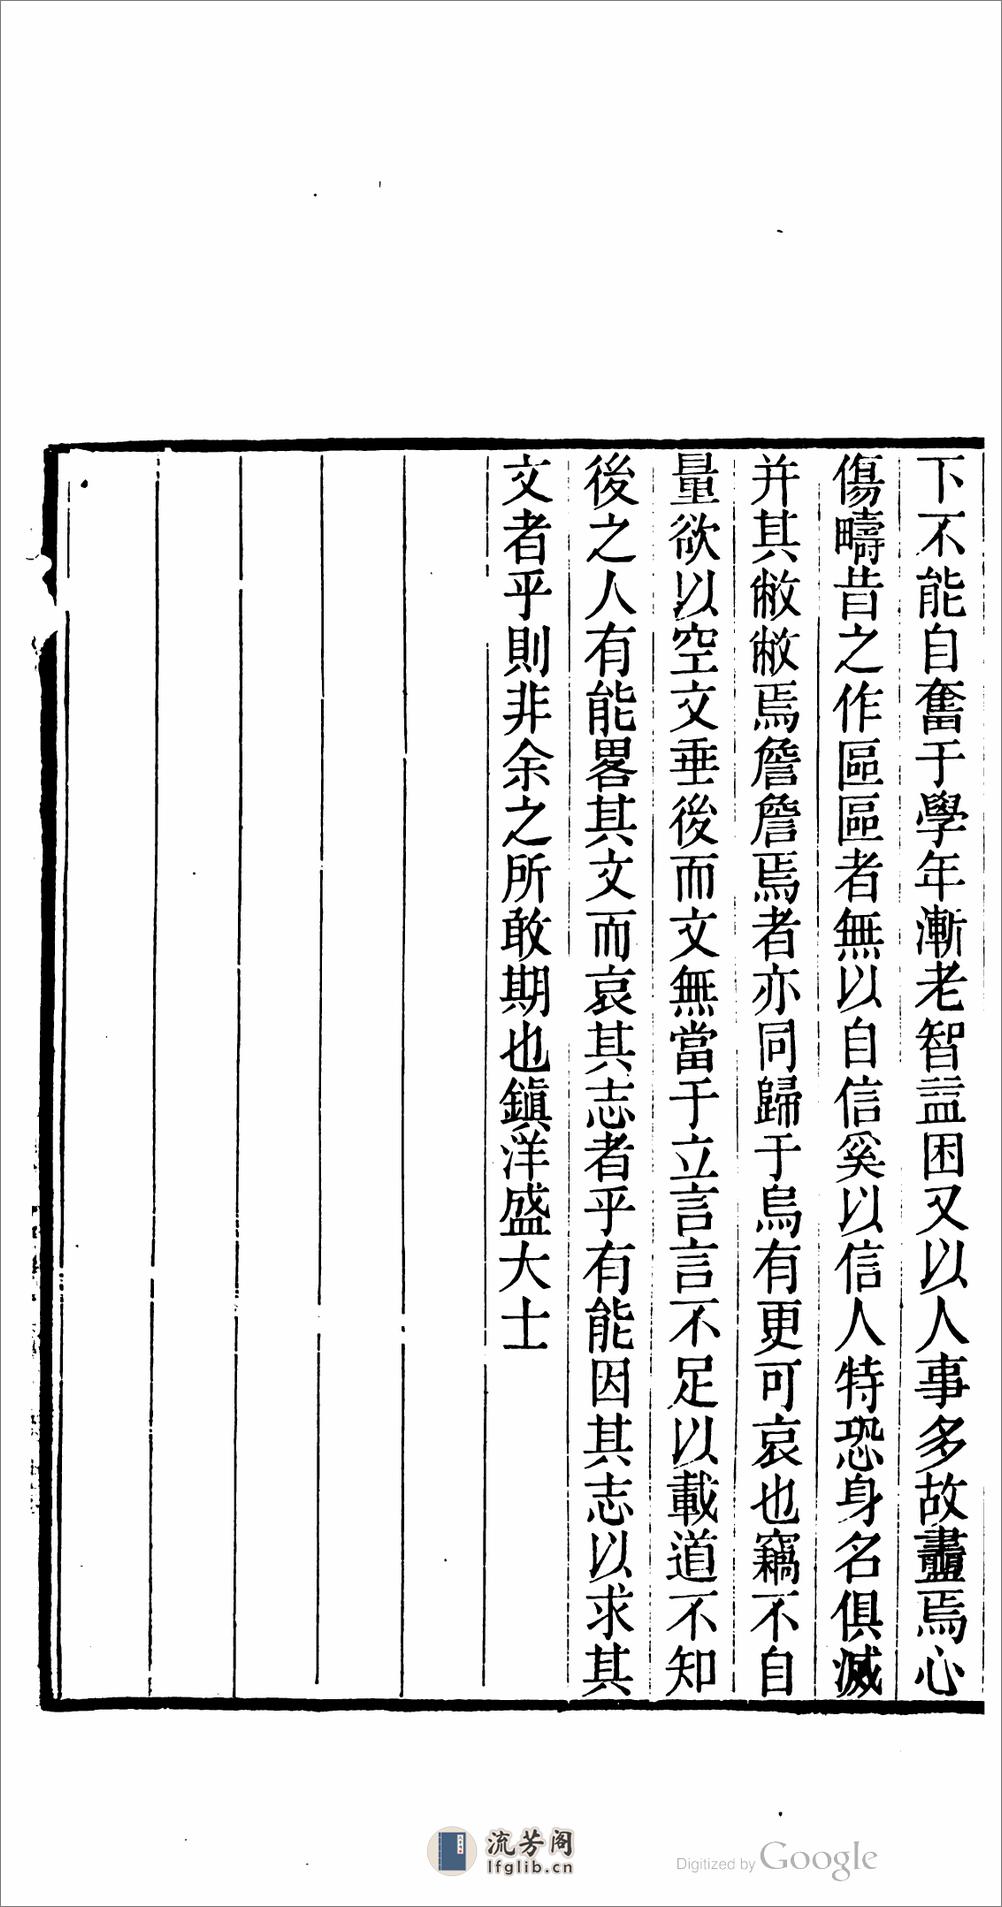 下不能自奮于學年漸老智益困又以人事多故盡焉心
傷疇昔之作區區者無以自信奚以信人特恐身名俱滅
并其敝敝焉詹詹焉者亦同歸于烏有更可哀也竊不自
量欲以空文垂後而文無當于立言言不足以載道不知
後之人有能畧其文而哀其志者乎有能因其志以求其
文者乎則非余之所敢期也鎮洋盛大士
流芳阁
lfglib.cn
Digitized by Google